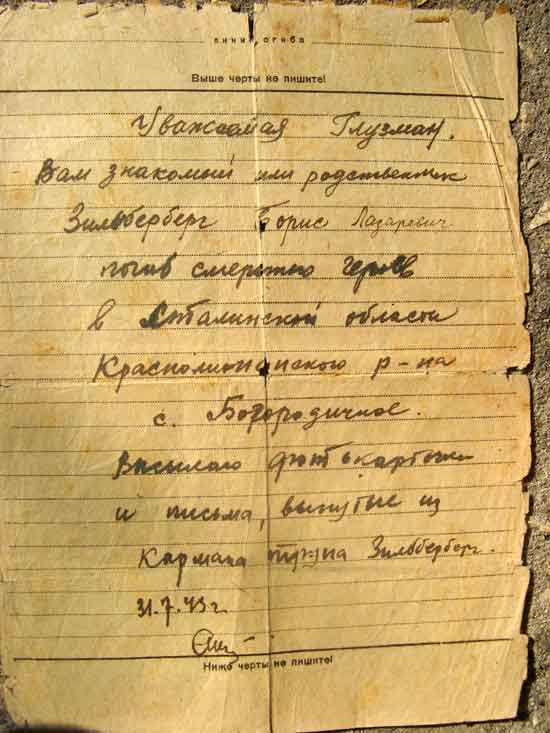 линия сгиба
Выше черты не пишите!
Уважаемая Глузман.
Вам знакомый или родственник
Зильберберг Борис Лазаревич
погиб смертью героев
в Сталинской области
Краснолиманского р-на
с. Богородичное.
Высылаю фотокарточки
и письма, вынутые из
кармана трупа Зильберберг.
31.7.43 г.
Ниже черты не пишите!